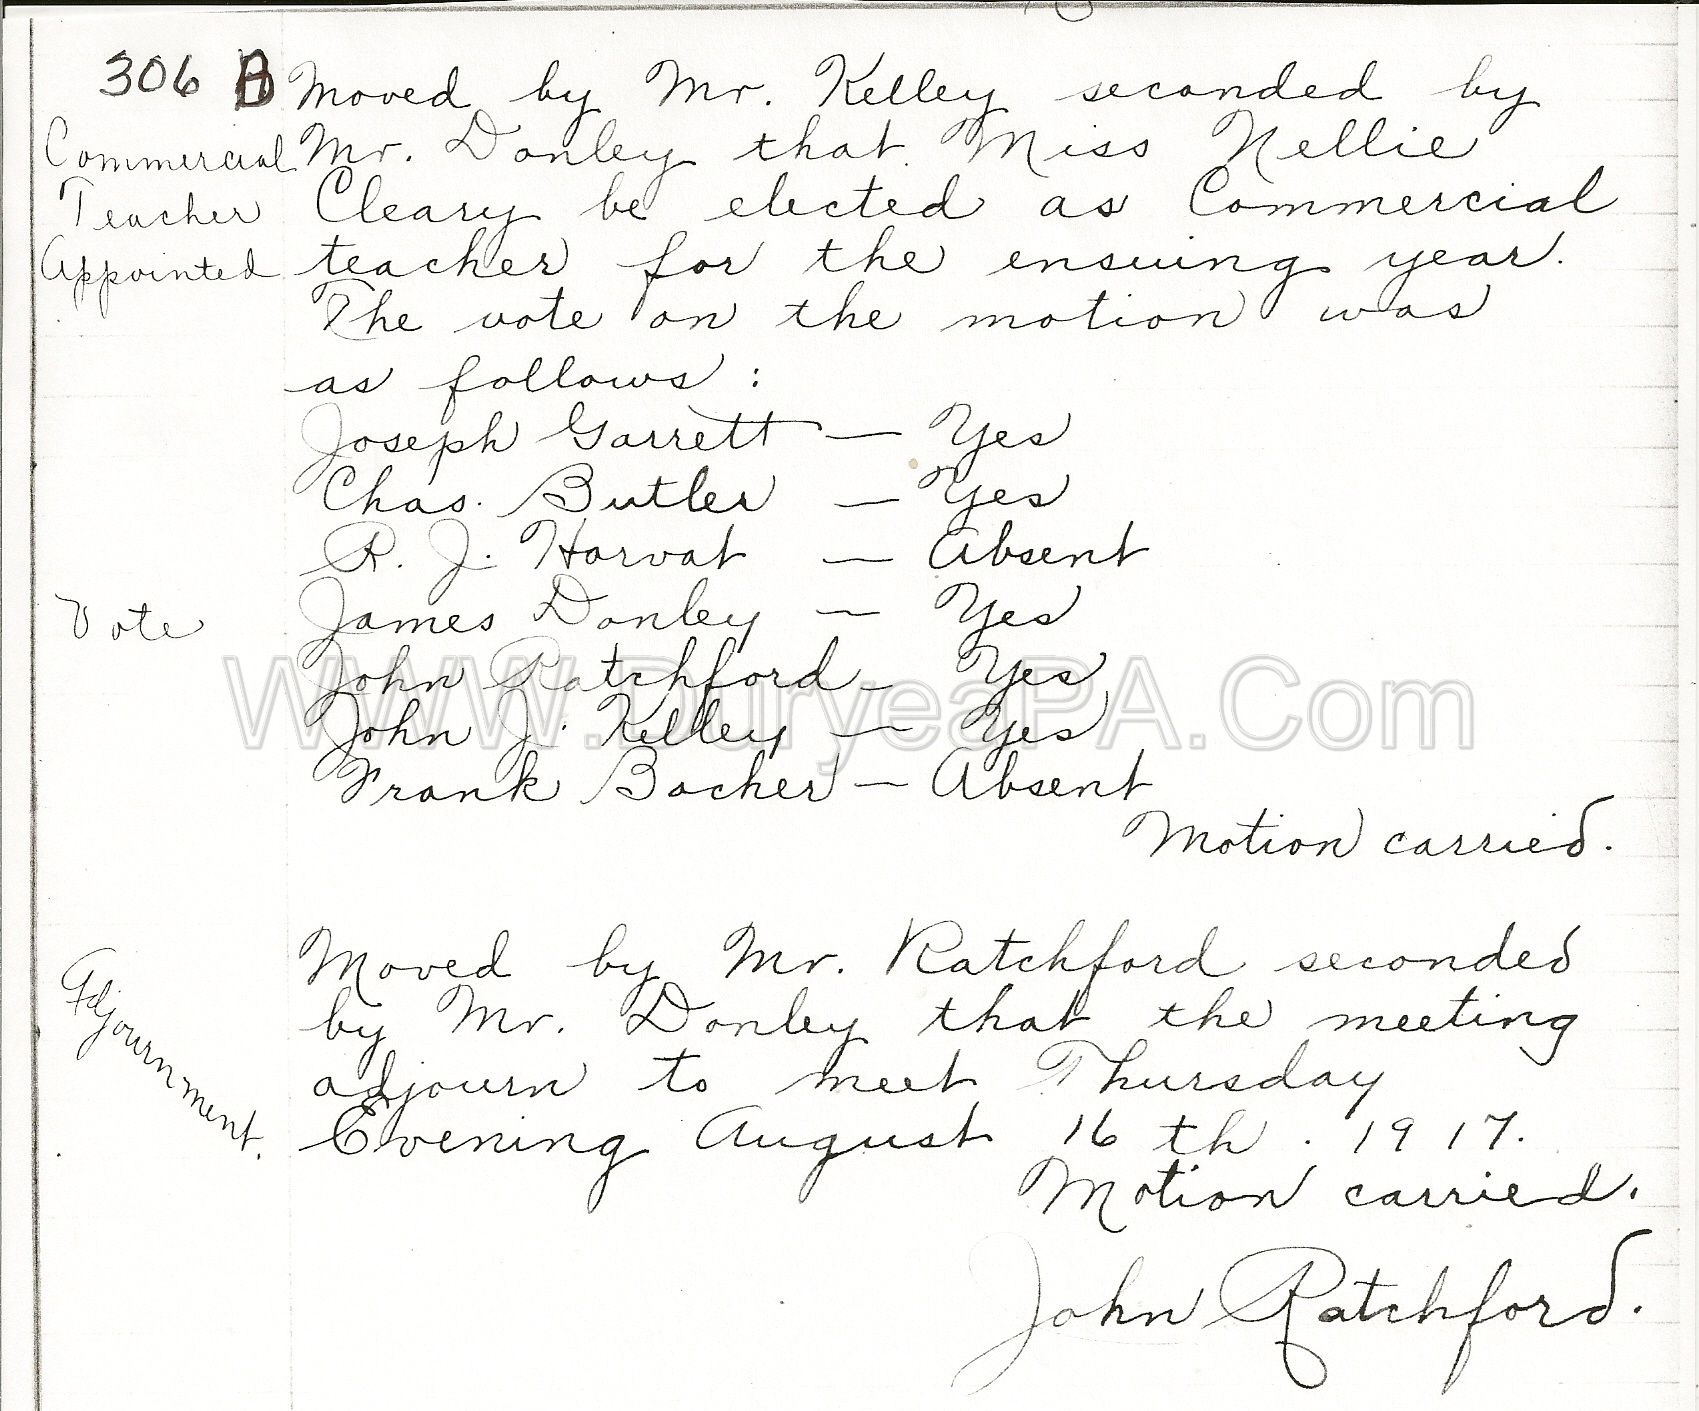 306 B Moved by Mr. Kelley seconded by
Commercial Mr. Donley that Miss Nellie
Teacher Cleary be elected as Commercial
Appointed teacher for the ensuing year.
The vote on the motion was
as follows:
Joseph Garrett — Yes
Chas. Butler — Yes
R. J. Horvat — Absent
Vote James Donley — Yes
John Ratchford — Yes
WWW.DuryeaPA.Com
John J. Kelley — Yes
Frank Bocher — Absent
Motion carried.
Adjournment.
Moved by Mr. Ratchford seconded
by Mr. Donley that the meeting
adjourn to meet Thursday
Evening August 16 th. 1917.
Motion carried.
John Ratchford.